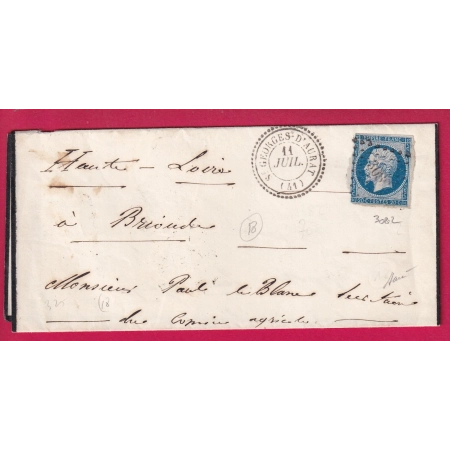 ST GEORGES-D'AURAT
11
JUIL.
(41)
EMPIRE FRANC
20 C POSTES 20 C
Haute-Loire
3082
à Brioude
18
Monsieur Paul le Blanc Secrétaire
du comice agricole